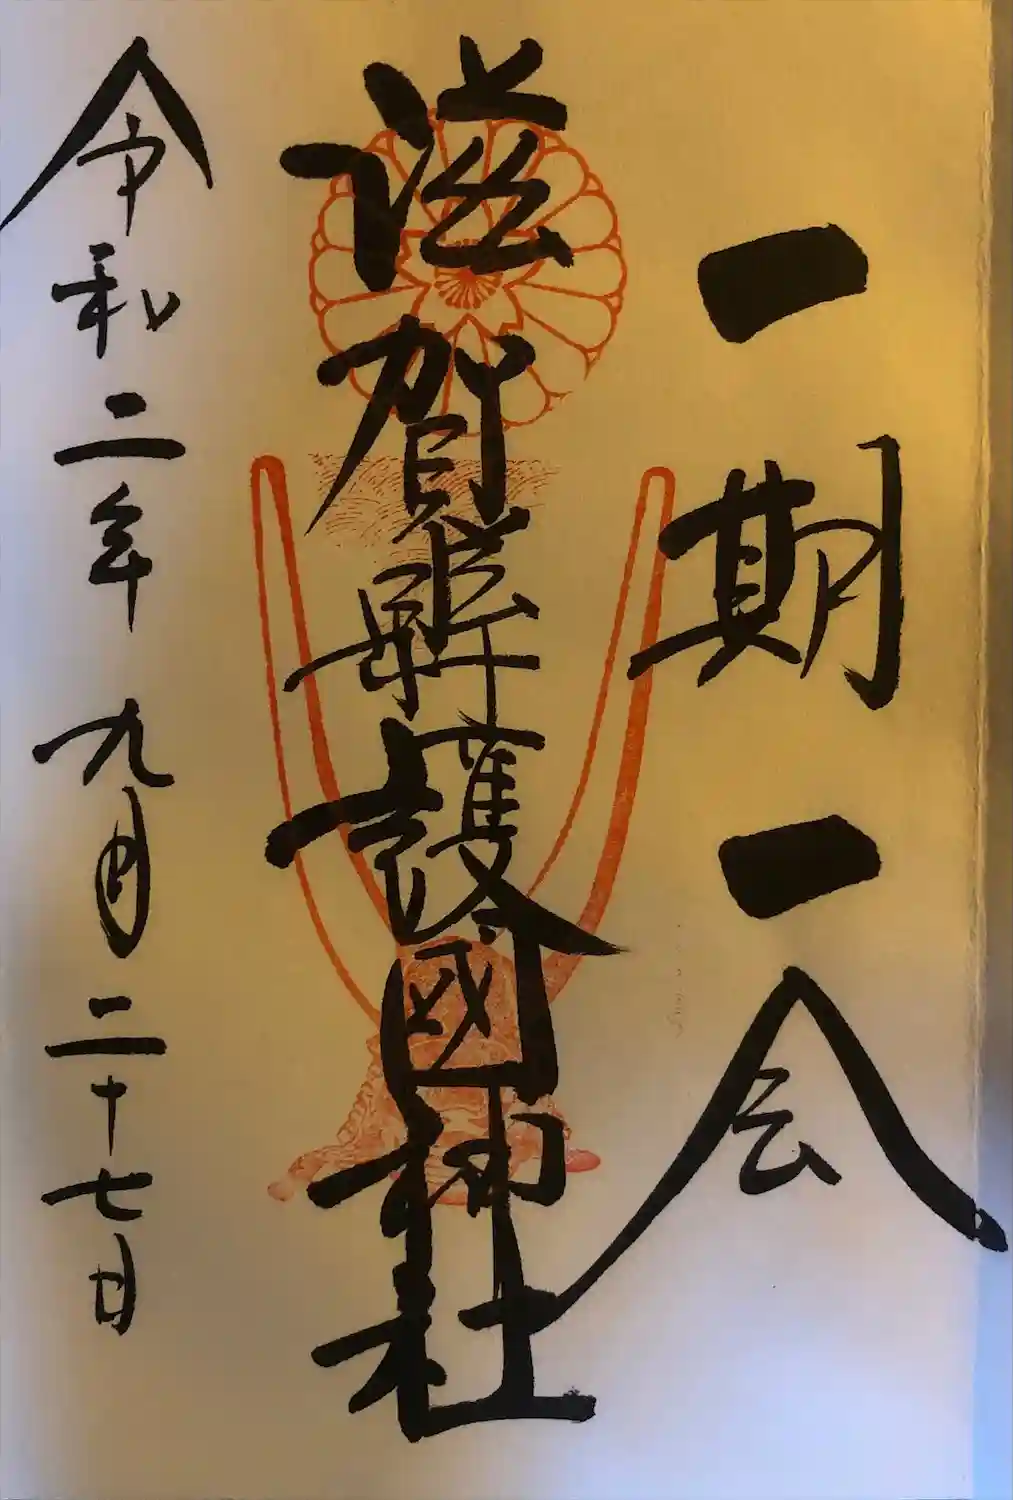 一期一会
滋賀縣護國神社
令和二年九月二十七日